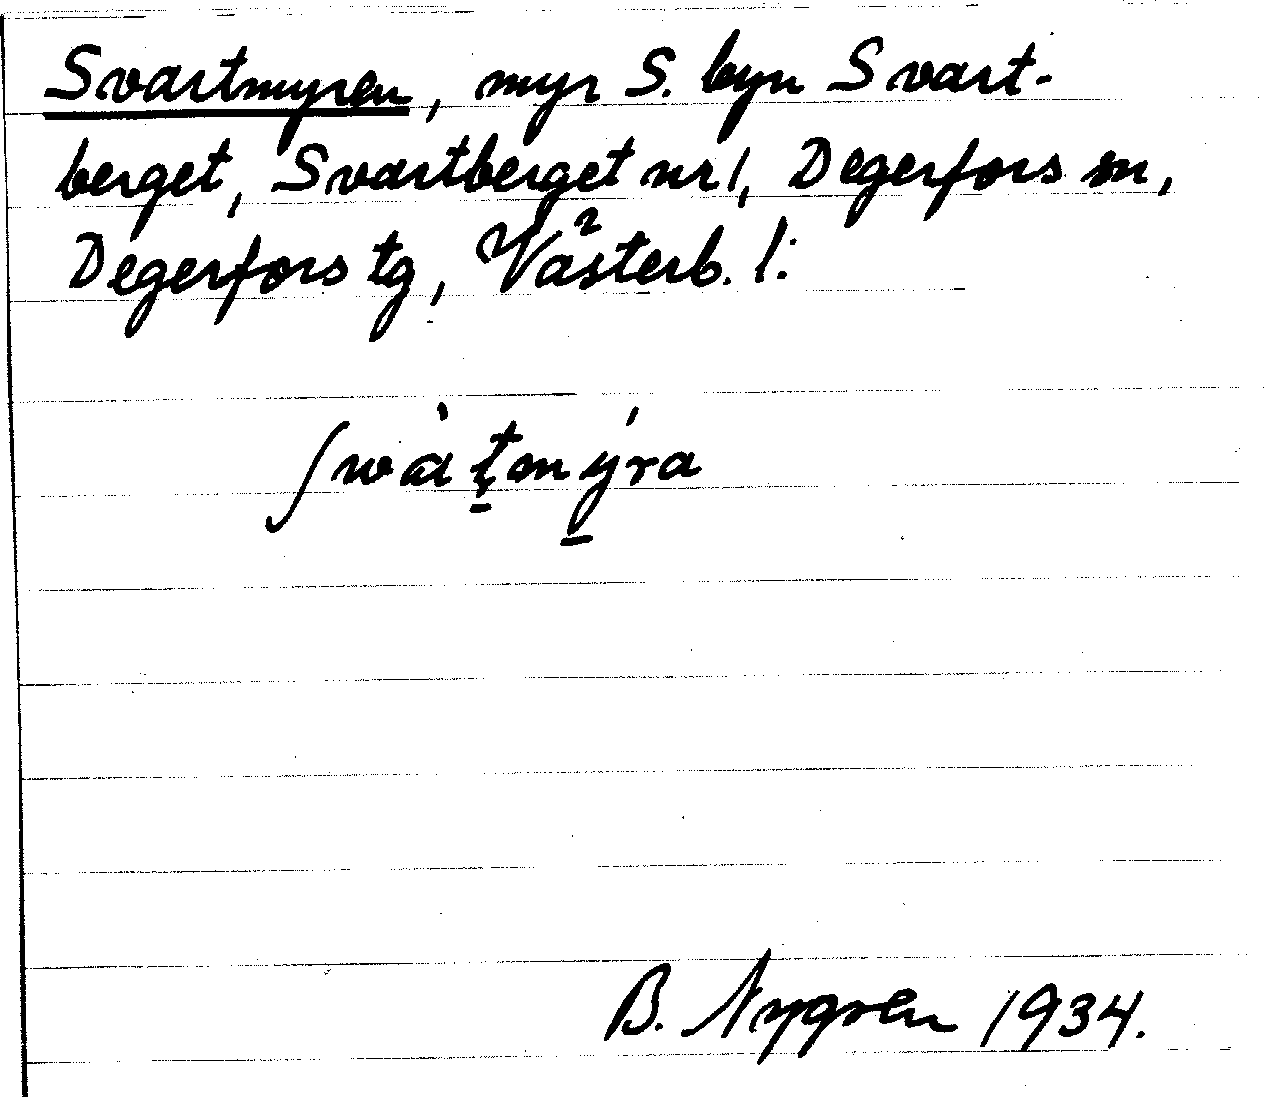 Svartmyren, myr S. byn Svart-
berget, Svartberget nr 1, Degerfors sn,
Degerfors tg, Västerb. l.
ʃwàṯmýra
B. Nygren 1934.